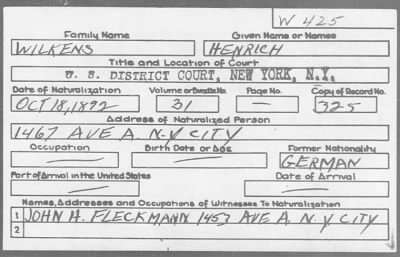 W 425
Family Name Given Name or Names
WILKENS HENRICH
Title and Location of Court
U. S. DISTRICT COURT, NEW YORK, N.Y.
Date of Naturalization Volume or Bundle No. Page No. Copy of Record No.
OCT 18, 1892 31 — 325
Address of Naturalized Person
1467 AVE A N-Y CITY
Occupation Birth Date or Age Former Nationality
— — GERMAN
Port of Arrival in the United States Date of Arrival
— —
Names, Addresses and Occupations of Witnesses To Naturalization
1 JOHN H. FLECKMANN 1453 AVE A. N.Y. CITY
2